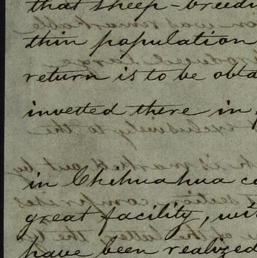 that sheep-breedi
thin population
return is to be obta
invested there in
in Chihuahua co
great facility, wi
have been realized